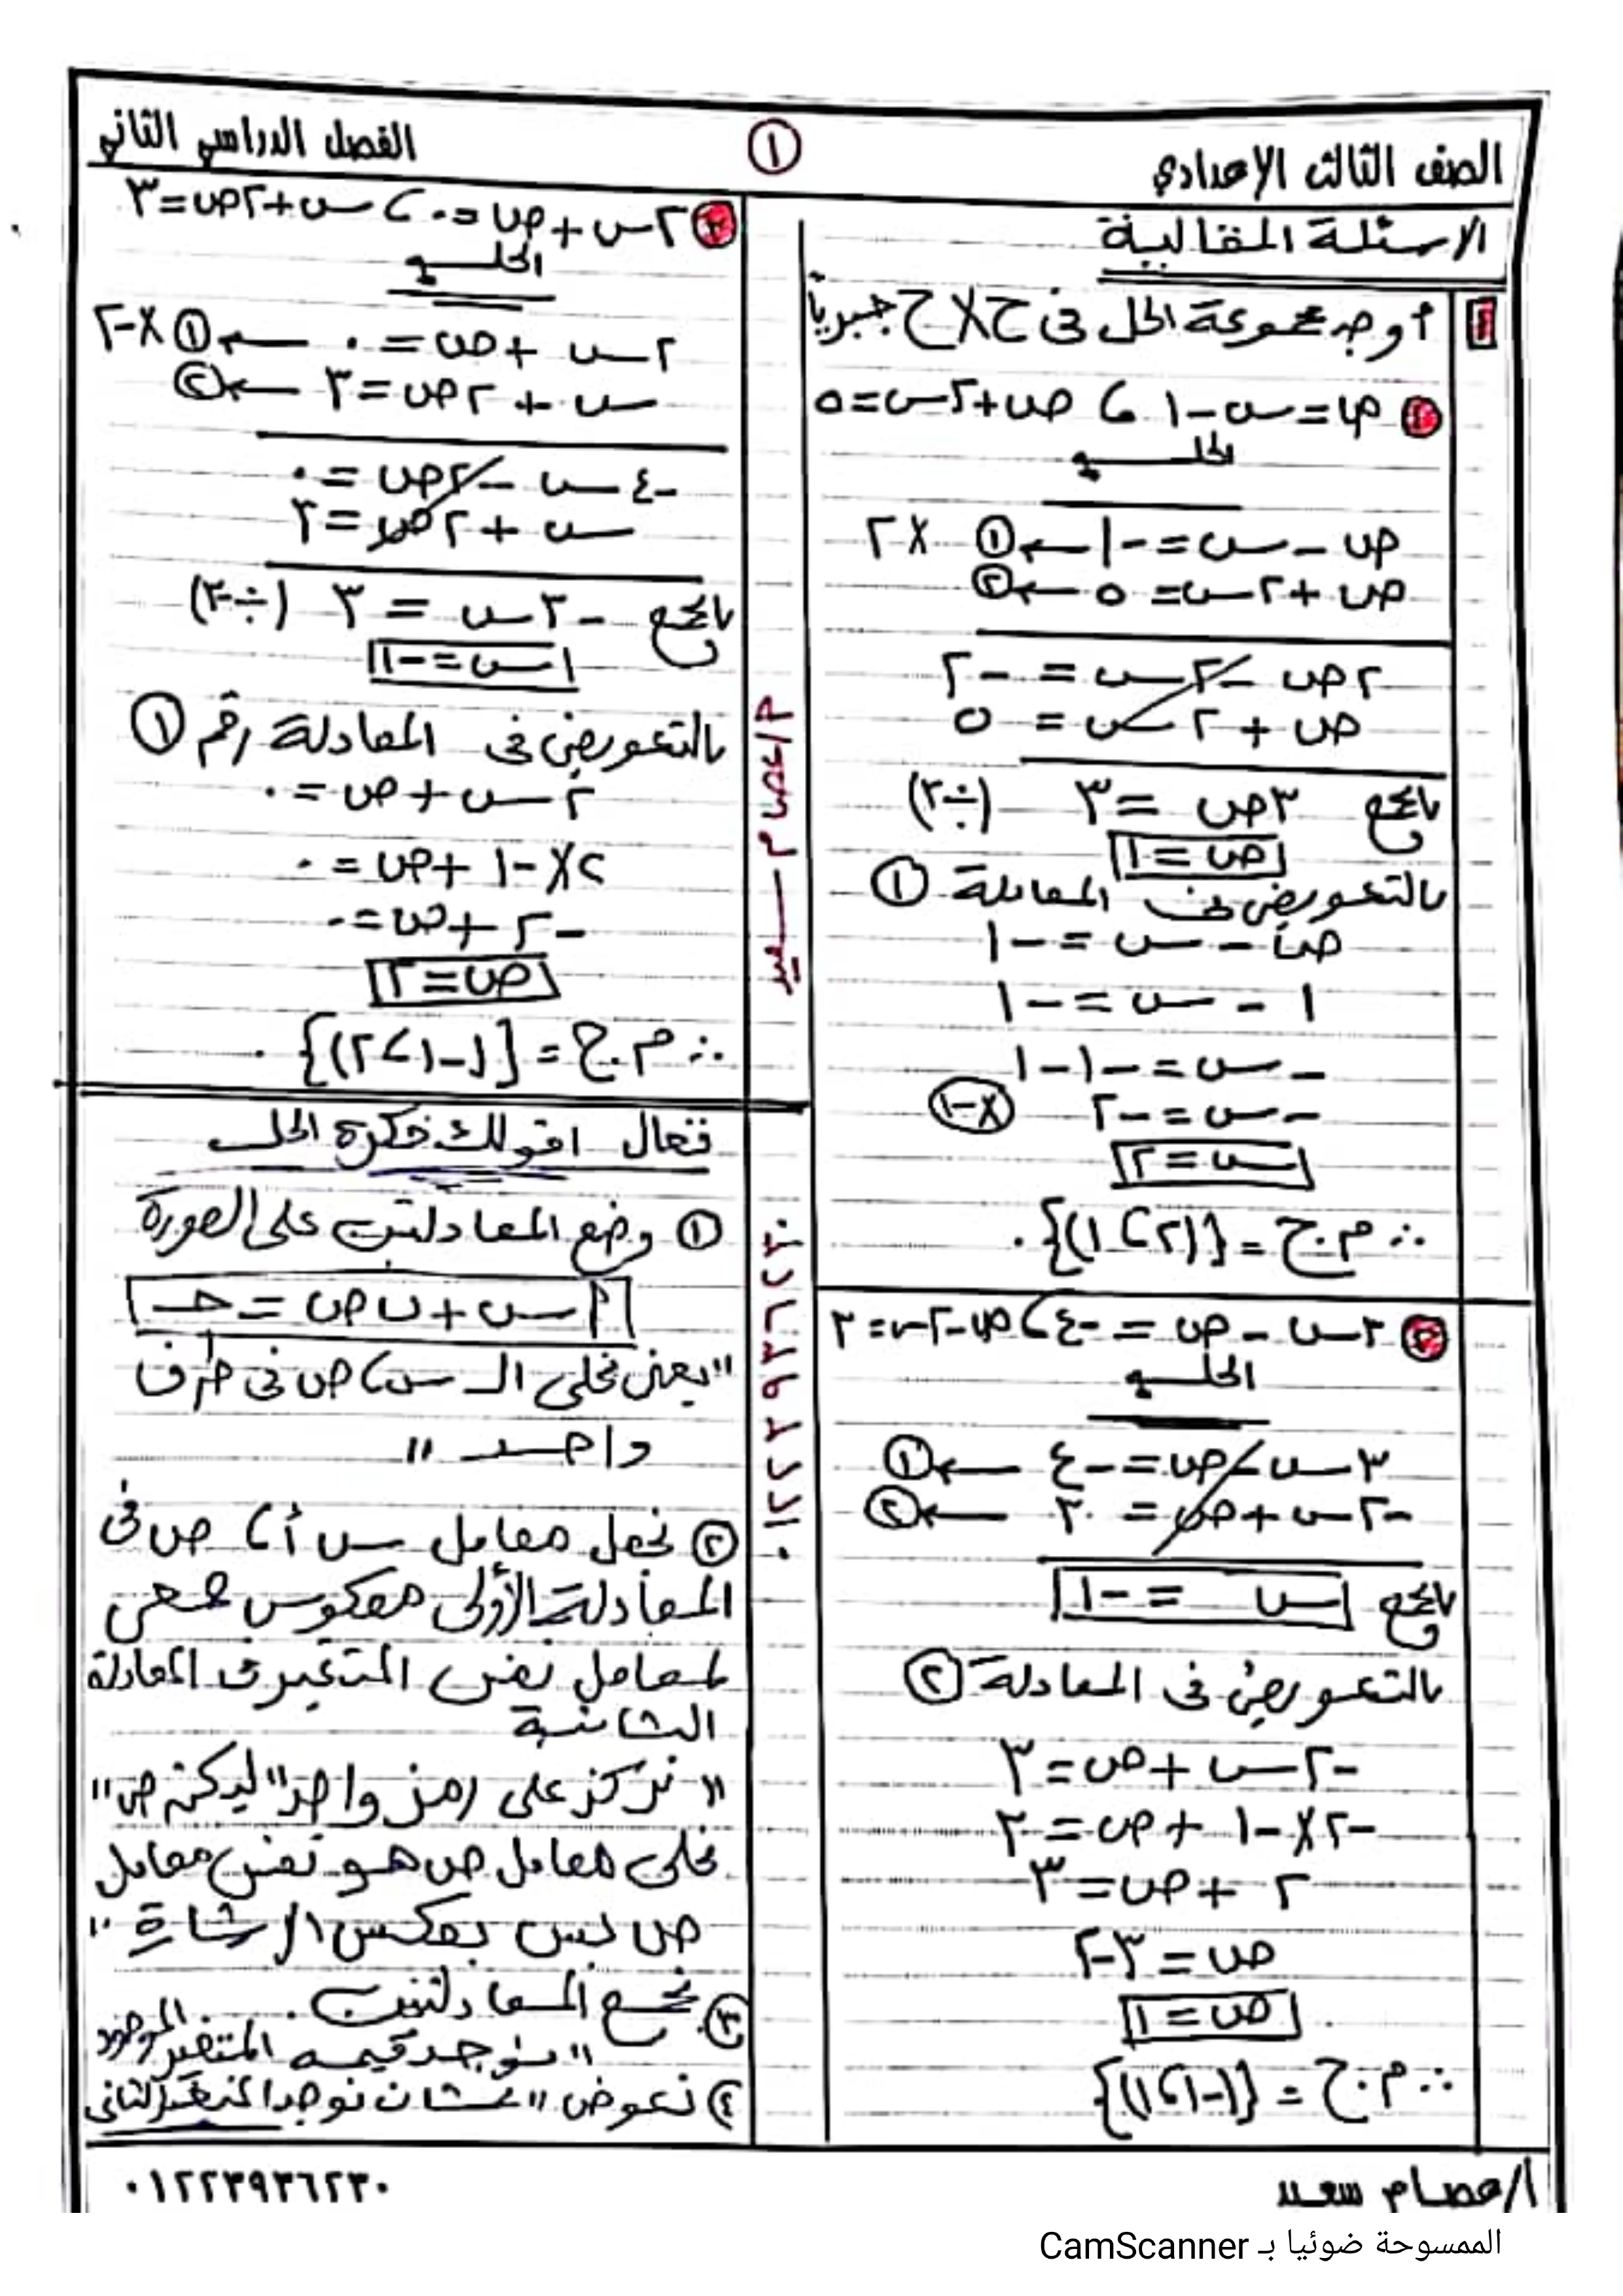 الصف الثالث الإعدادي
١
الفصل الدراسي الثاني
الاسئلة المقالية
١ أوجد مجموعة الحل فى ح×ح جبرياً
١ ص=س-١ ، ص+٢س=٥
الحل
ص - س = -١ ← ① ×٢
ص + ٢س = ٥ ← ②
٢ص - ٢س = -٢
ص + ٢س = ٥
بالجمع ٣ص = ٣ (÷٣)
ص = ١
بالتعويض فى المعادلة ①
ص - س = -١
١ - س = -١
-س = -١-١
-س = -٢ (×-١)
س = ٢
∴ م.ح = {(٢ ، ١)}.
٢ ٣س - ص = -٤ ، ص-٢س=٣
الحل
٣س - ص = -٤ ← ①
-٢س + ص = ٣ ← ②
بالجمع س = -١
بالتعويض فى المعادلة ②
-٢س + ص = ٣
-٢×-١ + ص = ٣
٢ + ص = ٣
ص = ٣-٢
ص = ١
∴ م.ح = {(-١ ، ١)}
٣ ٢س + ص = ٠ ، س+٢ص=٣
الحل
٢س + ص = ٠ ← ① ×-٢
س + ٢ص = ٣ ← ②
-٤س - ٢ص = ٠
س + ٢ص = ٣
بالجمع -٣س = ٣ (÷-٣)
س = -١
بالتعويض فى المعادلة رقم ①
٢س + ص = ٠
٢×-١ + ص = ٠
-٢ + ص = ٠
ص = ٢
∴ م.ح = {(-١ ، ٢)}.
تعال اقولك فكرة الحل
① وضع المعادلتين على الصورة
أس + ب ص = حـ
"يعنى نخلى الـ س ، ص فى طرف
واحد "
② نجعل معامل س أ، ص فى
المعادلة الأولى معكوس جمعى
لمعامل نفس المتغير فى المعادلة
الثانية
"نركز على رمز واحد "ليكن ص"
نخلى معامل ص هو نفس معامل
ص بس بعكس الإشارة "
③ نجمع المعادلتين
"نوجد قيمه المتغير الموجود
④ نعوض "عشان نوجد المتغير الثانى
أ/عصام سعيد
٠١٢٢٣٩٣٦٢٣٠
أ/عصام سعيد
٠١٢٢٣٩٣٦٢٣٠
الممسوحة ضوئيا بـ CamScanner